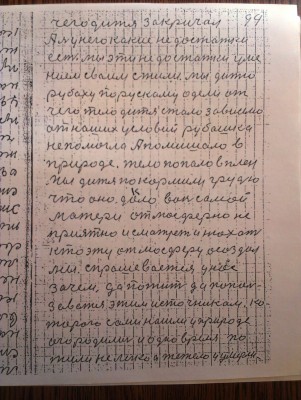 чего дитя закричал 99
А я у него какие недостатки
есть. мы эти недостатки уме
нием своим сшили. мы дитю
рубаху по рускому одели от
чего тело дитя стало зависимо
от наших условий рубашка
непомогла А помишало в
природе. тело попало в плен
Мы дитя покормили грудью
что оно дало вок самой
матери отмосферно не
приятно и сматрет и нюхат
кто эту отмосферу создал
мы. спрашевается у нас
зачем. да потит да попол-
зоватся этим источникам. ко-
торого сами нашли у природе
огородили и одно время по
жили не легко а тежело и умерли.